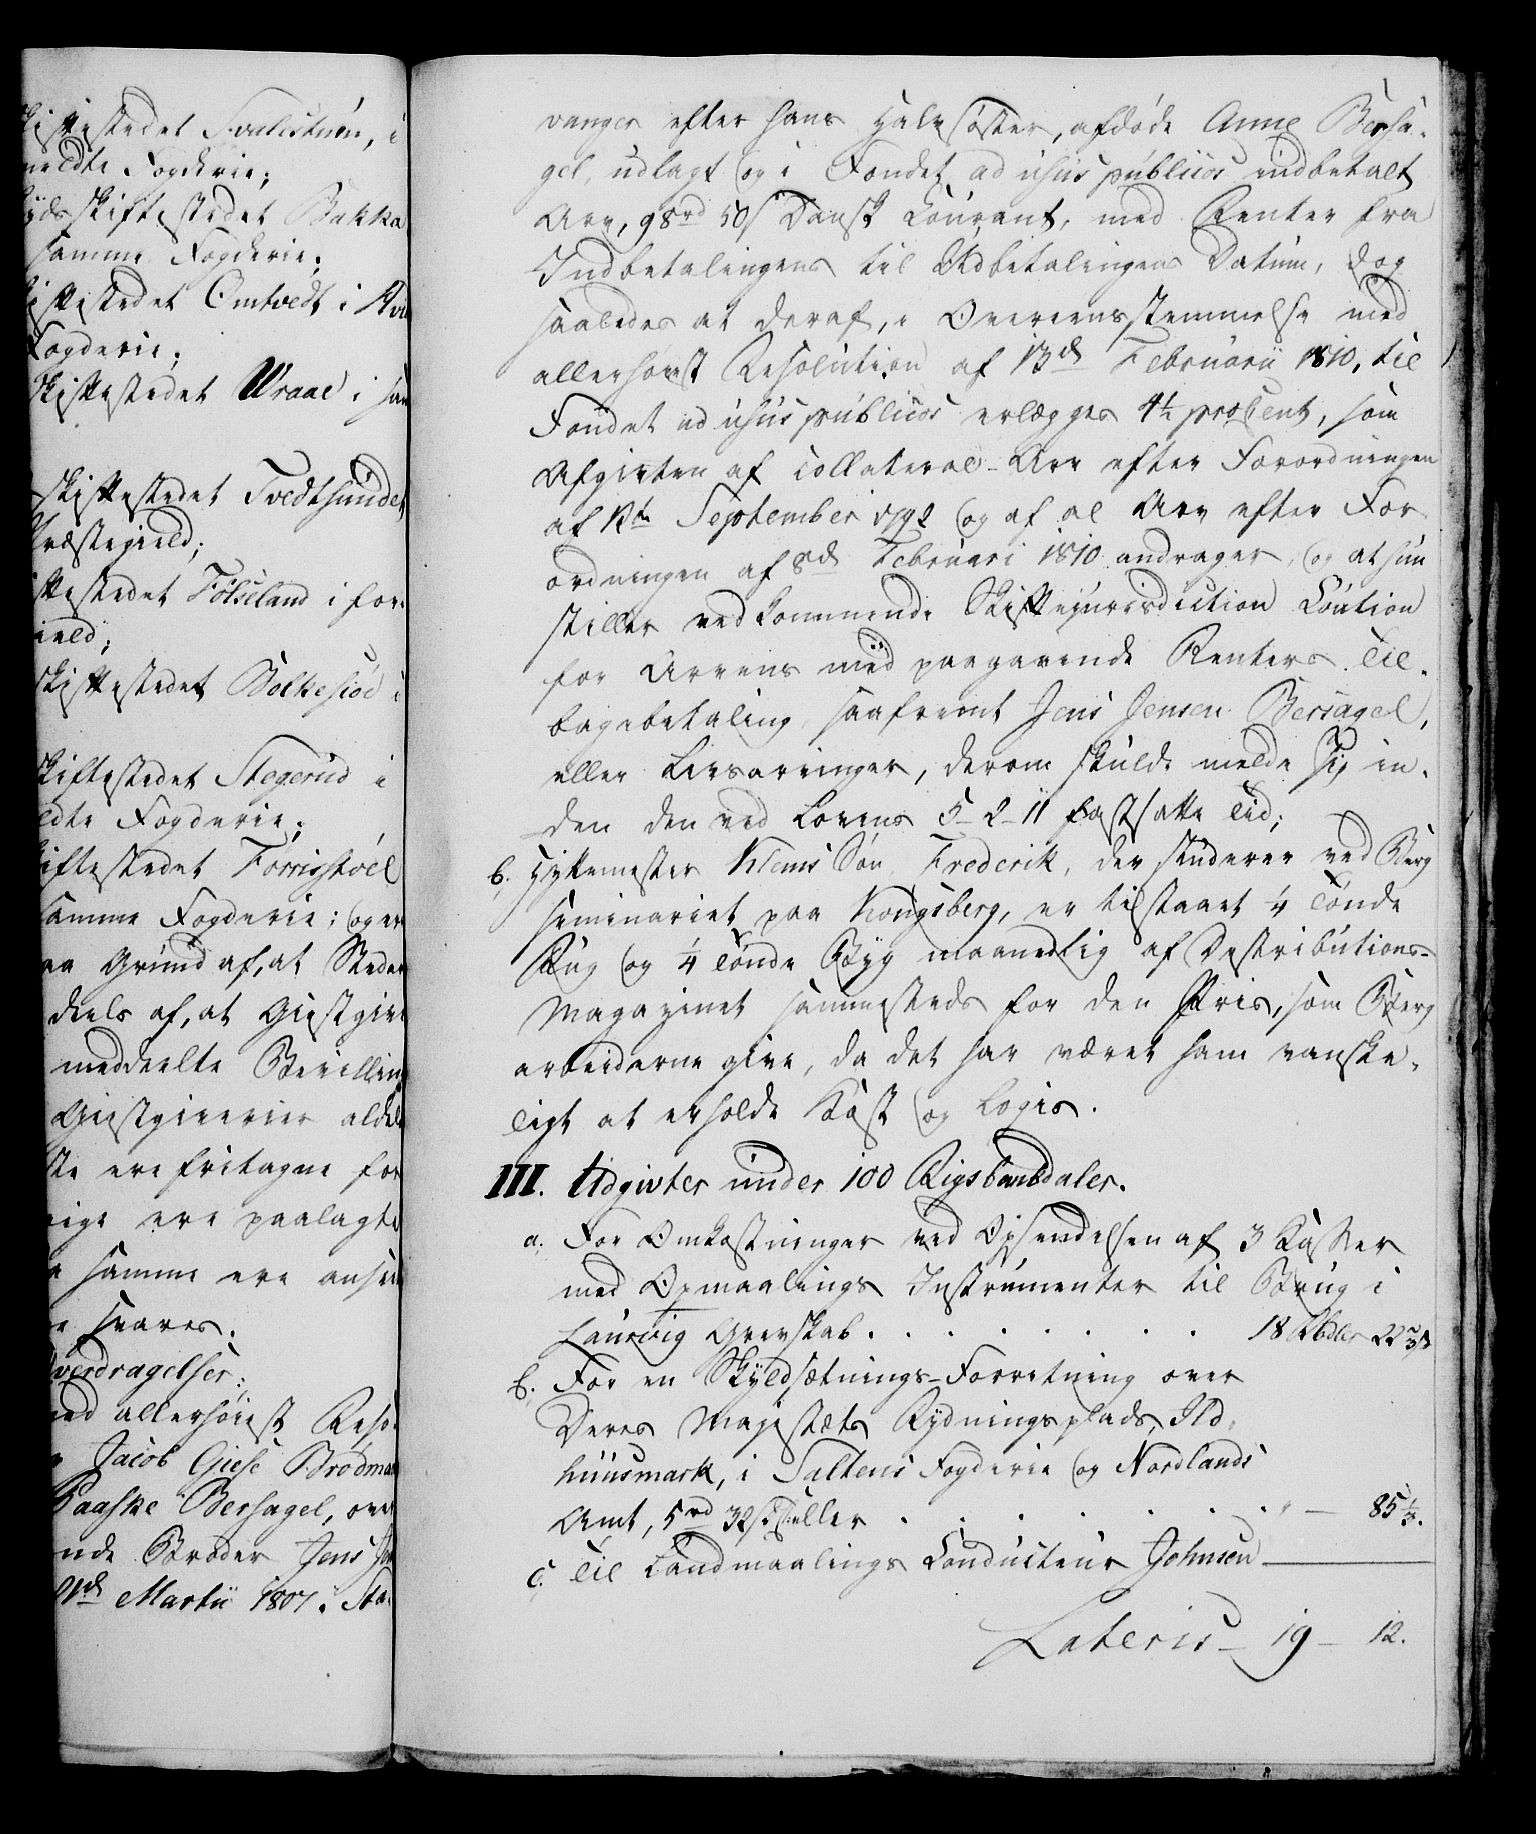 skiftestedet Svalestuen, i
meldte Fogderie;
skiftestedet Bakka
samme Fogderie;
skiftestedet Omtvedt i
Fogderie;
Skiftestedet Wraae i sam
skiftestedet Tvedtsundet
Præstegield;
skiftestedet Fölseland i for-
ield;
skiftestedet Bolkesiöe i
skiftestedet Stegerud i
ldte Fogderie;
iftestedet Torrisstöel
samme Fogderie; og er
aa Grund af, at Steder
deels af, at Giestgive
meddeelte Bevilling
Giestgiverier aldel
ste ere fritagne for
rige ere paalagte
samme ere anse
svares.
verdragelser;
ved allerhöiest Reso-
Jacob Giese Brodm
Paaske Bersagel, over
nde Broder Jens Je
21de Martii 1807. Sta-
vanger efter hans Halvsöster, afdöde Anne Bersa-
gel, udlagt og i Fondet ad usus publicos indbetalt
Arv, 98rd 50s Dansk Courant, med Renter fra
Indbetalingens til Udbetalingens Datum, dog
saaledes at deraf, i Overeensstemmelse med
allerhöiest Resolution af 13de Februarii 1810, til
Fondet ad usus publicos erlægges 4½ procent, som
Afgivten af Collateral-Arv efter Forordningen
af 12te September 1792 og af al Arv efter For-
ordningen af 8de Februari 1810 andrager, og at hun
stiller vedkommende Skiftejurisdiction Caution
for Arvens med paagaaende Renters Til-
bagebetaling, saafremt Jens Jensen Bersagel,
eller Livsarvinger, derom skulde melde sig in-
den den ved Lovens 5-2-11 fastsatte Tid;
b. Hyttemester Klems Sön, Frederik, der studerer ved Berg
seminariet paa Kongsberg, er tilstaaet ¼ Tönde
Rug og ¼ Tönde Byg maanedlig af Destributions-
Magazinet sammesteds for den Priis, som Berg
arbeiderne give, da det har været ham vanske-
ligt at erholde Kost og Logis.
III. Udgivter under 100 Rigsbankdaler.
a. For Omkostninger ved Opsendelsen af 3 Kasser
med Opmaalings Instrumenter til Brug i
Laurvig Grevskab . . . . . . . . 18 Rbdler 22⅔ s
b. For en Skyldsætnings-Forretning over
Deres Majestæts Rydningsplads, Ild-
huusmark, i Saltens Fogderie og Nordlands
Amt, 5rd 32s eller . . . . . . . " — 85⅓.
c. Til Landmaalings Conducteur Johnsen
Lateris — 19 — 12.